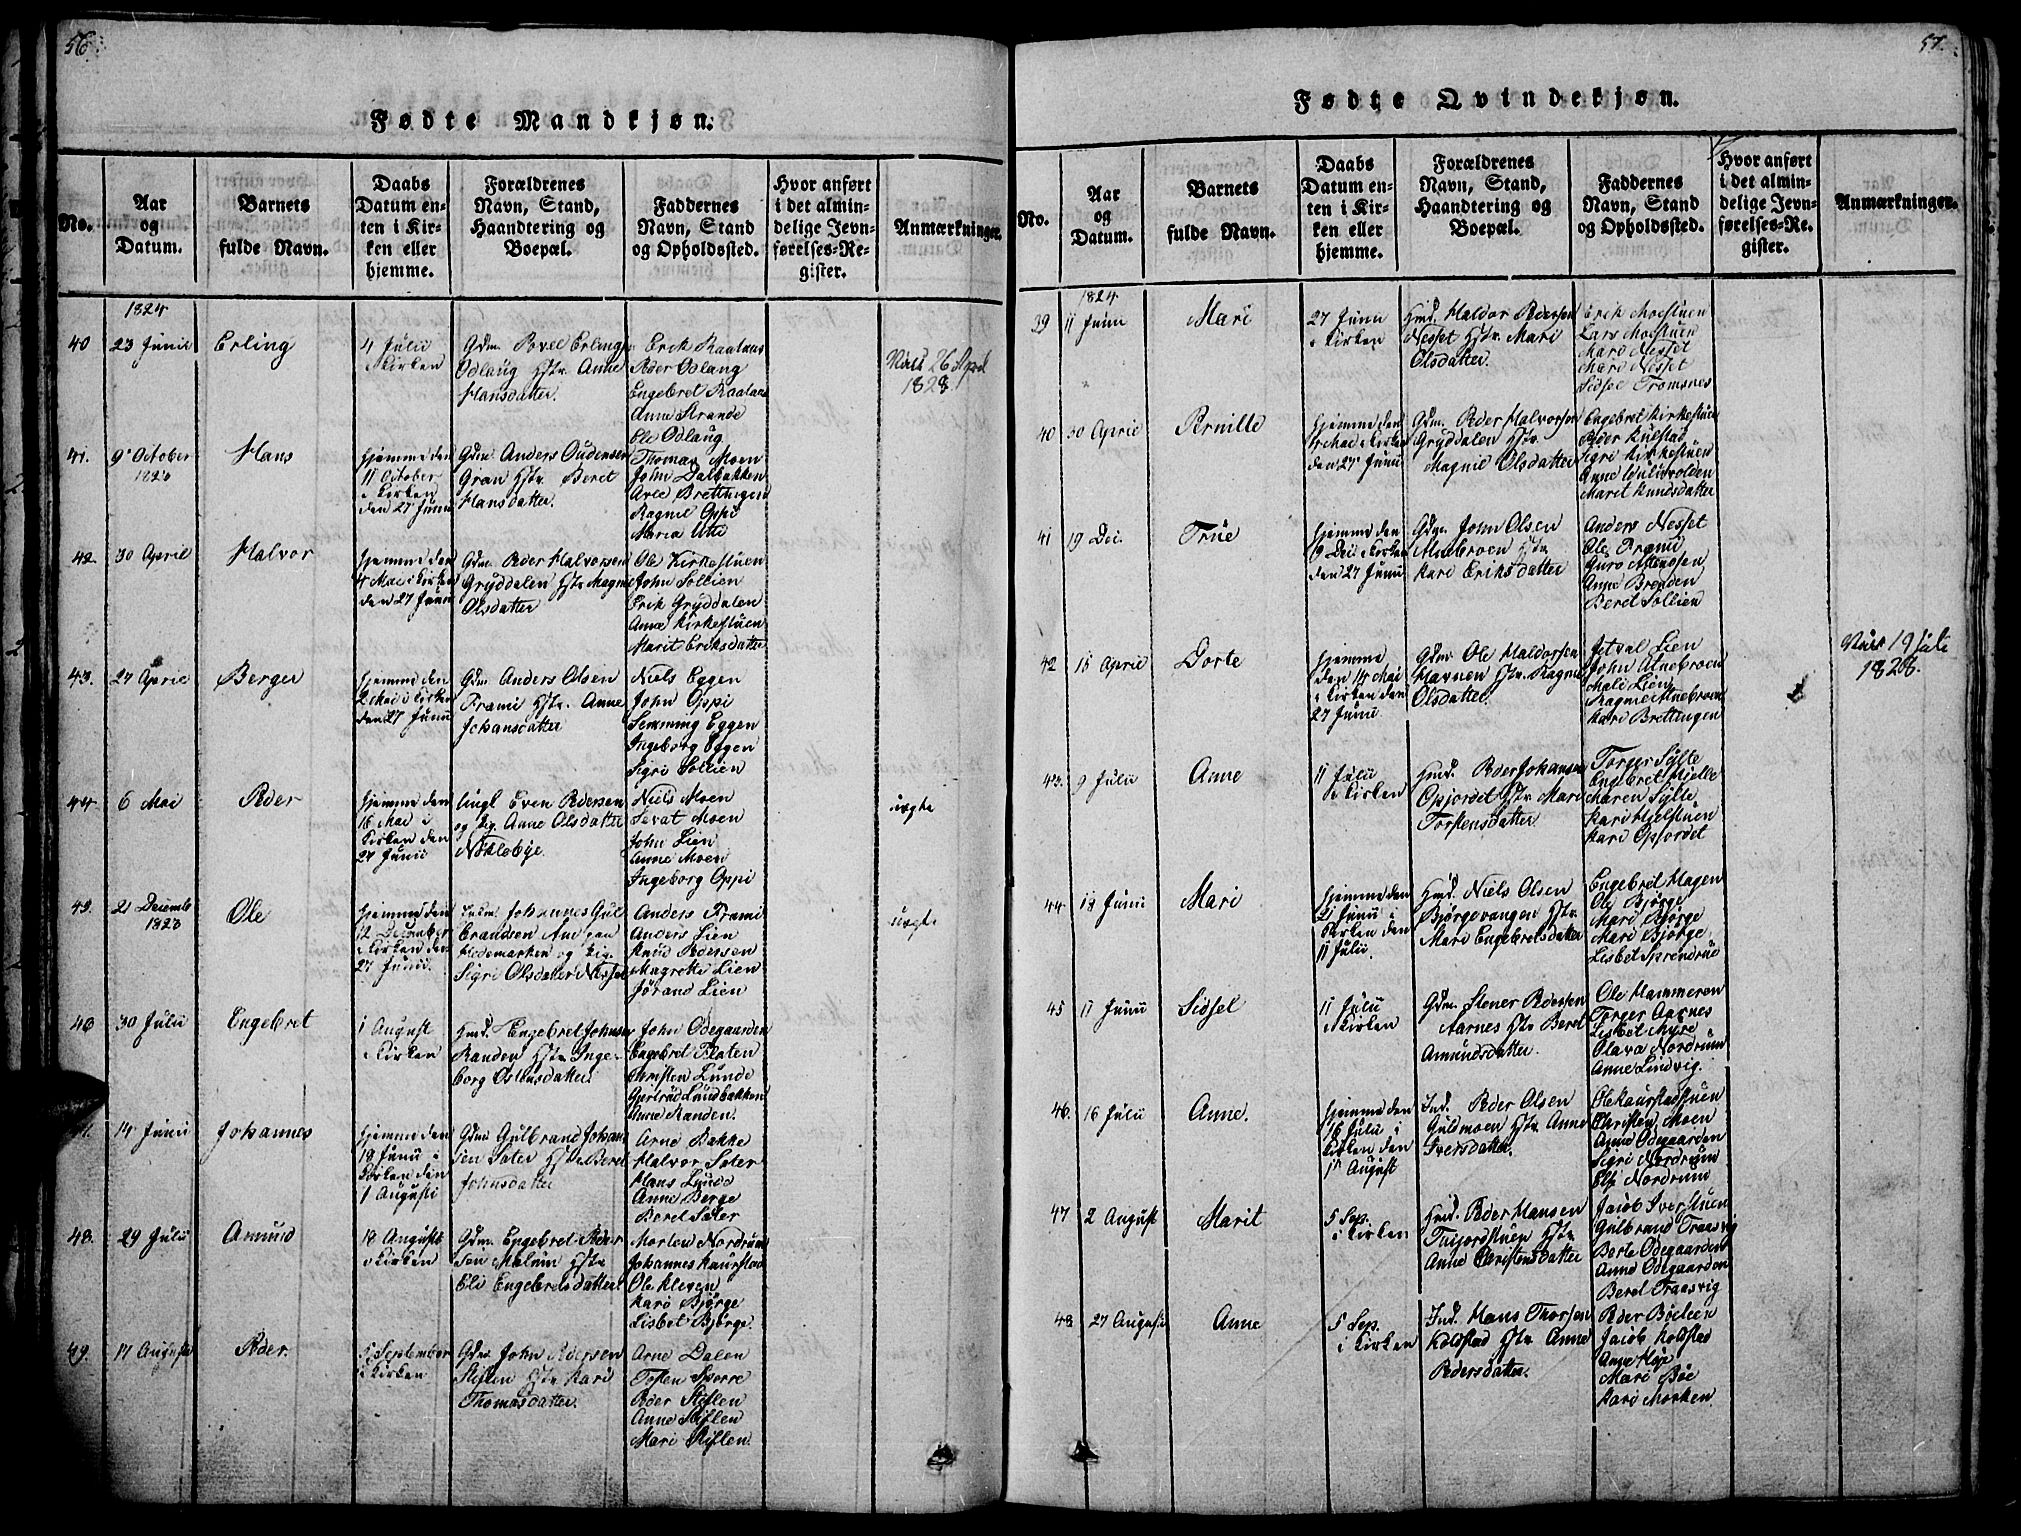 56.
Fødte Mandkjøn.
No.
Aar
og
Datum.
Barnets
fulde Navn.
Daabs
Datum en-
ten i Kir-
ken eller
hjemme.
Forældrenes
Navn, Stand,
Haandtering og
Boepæl.
Faddernes
Navn, Stand
og Opholdssted.
Hvor anført
i det almin-
delige Jevn-
førelses-Re-
gister.
Anmærkninger.
1824
40
23 Junii
Erling
4 Julii
i Kirken
Gdm. Povel Erlings
Odlaug Hstr. Anne
Hansdatter.
Erik Raalaas
Peder Odlaug
Engebret Raalaas
Anne Strande
Ele Odlaug
1828
41.
9 October
1823
Hans
hjemme den
11 October
i Kirken
den 27 Junii
Gdm. Anders Oudensen
Gran Hstr. Beret
Hansdatter.
Thomas Moen
John Dalbakken
Arve Brettingen
Ragnil Oppi
Maria Utti
42.
30 April
Halvor
hjemme den
4 Mai i Kirken
den 27 Junii
Gdm. Peder Halvorsen
Gryddalen Hstr. Magnil
Olsdatter
Ole Kirkestuen
John Sollien
Erik Gryddalen
Anne Kirkestuen
Marit Eriksdatter
43.
27 April
Berger
hjemme den
2 Mai i Kirken
den 27 Junii
Gdm. Anders Olsen
Frami Hstr. Anne
Johansdatter
Niels Eggen
John Oppi
Semming Eggen
Ingeborg Eggen
Sigri Sollien
44.
6 Mai
Peder
hjemme den
16 Mai i
Kirken den
27 Junii
Ungk. Even Pedersen
og Pig. Anne Olsdatter
Næklebye.
Niels Moen
Sevat Moen
John Lien
Anne Moen
Ingeborg Oppi
uægte
45.
21 Decemb
1823
Ole
hjemme den
12 December
i Kirken den
27 Junii.
Johannes Gul
brandsen
Hedemarken og Pig.
Sigri Olsdatter Nesset
Anders Frami
Anders Lien
Knud Pedersen
Magrethe Lien
Jørand Lien
uægte
46
30 Julii
Engebret
1 August
i Kirken
Hmd. Engebret Johnsen
Randen Hstr. Inge-
borg Ostensdatter.
John Odegaarden
Engebret Flaten
Christen Lunde
Gjertrud Lundbakken
Anne Randen.
14 Junii
Johannes
hjemme den
18 Junii i
Kirken den
1 Augusti
Gdm. Gulbrand Johan
sen Sater Hstr. Beret
Johnsdatter
Arne Bakke
Halvor Sater
Hans Lunde
Anne Berge
Beret Sater
48.
29 Julii
Amund
18 Augusti
i Kirken
Gdm. Engebret Peder
sen Melum Hstr.
Eli Engebretsdatter
Morten Nordrum
Johannes Kaurstad
Ole Kleven
Kari Bjørge
Lisbet Bjørge.
49.
17 Augusti
Peder.
5 September
i Kirken
Gdm. John Pedersen
Stiflen Hstr. Kari
Thomasdatter.
Arne Dalen
Tosten Sperre
Peder Stiflen
Anne Stiflen
Mari Stiflen.
57.
Fødte Qvindekjøn.
No.
Aar
og
Datum.
Barnets
fulde Navn.
Daabs
Datum en-
ten i Kir-
ken eller
hjemme.
Forældrenes
Navn, Stand,
Haandtering og
Boepæl.
Faddernes
Navn, Stand
og Opholdssted.
Hvor anført
i det almin-
delige Jevn-
førelses-Re-
gister.
Anmærkninger.
1824
39
11 Junii
Mari
27 Junii
i Kirken
Hmd. Haldor Pedersen
Nesset Hstr. Mari
Olsdatter.
Erik Moestuen
Lars Moestuen
Mari Nesset
Mari Nesset
Sidsel Tromsnes
40
30 April
Pernille
hjemme den
4 Mai i Kirken
den 27 Junii
Gdm. Peder Halvorsen
Gryddalen Hstr.
Magnil Olsdatter
Engebret Kirkestuen
Peder Kulstad
Sigri Kirkestuen
Anne Ulvolden
Maret Knudsdatter
41
19 Dec.
True
hjemme den
19 Dec i Kirken
den 27 Junii
Gdm. John Olsen
Alnebroen Hstr.
Kari Eriksdatter
Anders Nesset
Ole Frami
Guro Alfendsen
Anne Brenden
Beret Sollien
42
15 April
Dorte
hjemme
den 14 Mai
i Kirken den
27 Junii
Gdm. Ole Haldorsen
Havnen Hstr. Ragnil
Olsdatter.
Sevat Lien
John Alnebroen
Mali Lien
Ragnil Alnebroen
Kari Brettingen
19 Juli
1826.
43.
9 Julii
Anne
11 Julii
i Kirken
Hmd. Peder Johansen
Opjordet Hstr. Mari
Torstensdatter.
Torger Sylte
Engebret Hjelle
Maren Sylte
Kari Hjelstuen
Kari Opjordet
44
18 Junii
Mari
hjemme den
21 Junii i
Kirken den
11 Julii.
Hmd. Niels Olsen
Bjørgevangen Hstr.
Mari Engebretsdatter
Engebret Hagen
Ole Bjørge
Mari Bjørge
Mari Bjørge
Lisbet Sprendrud
45
17 Junii
Sidsel
11 Julii
i Kirken
Gdm. Stener Pedersen
Aarnes Hstr. Beret
Amundsdatter.
Ole Hammeren
Torger Aarnes
Lisbet Myre
Olava Nordrum
Anne Lundvig.
46.
16 Julii
Anne.
hjemme den
16 Julii i
Kirken den
15 August
Ind. Peder Olsen
Guldmoen Hstr. Anne
Iversdatter.
Ole Kaurstadstuen
Christen Moen
Anne Odegaarden
Sigri Nordrum
Eli Nordrum
47
2 August
Marit
5 Sep.
i Kirken
Hmd. Peder Hansen
Tuejordstuen Hstr.
Anne Christensdatter
Jacob Iverstuen
Gulbrand Traasvig
Berte Odegaarden
Anne Odegaarden
Beret Traasvig
48
27 August
Anne
5 Sep.
i Kirken
Ind. Hans Thorsen
Kolstad Hstr. Anne
Pedersdatter.
Peder Böeleen
Jacob Kolstad
Anne Höje
Mari Böe
Kari Morken.